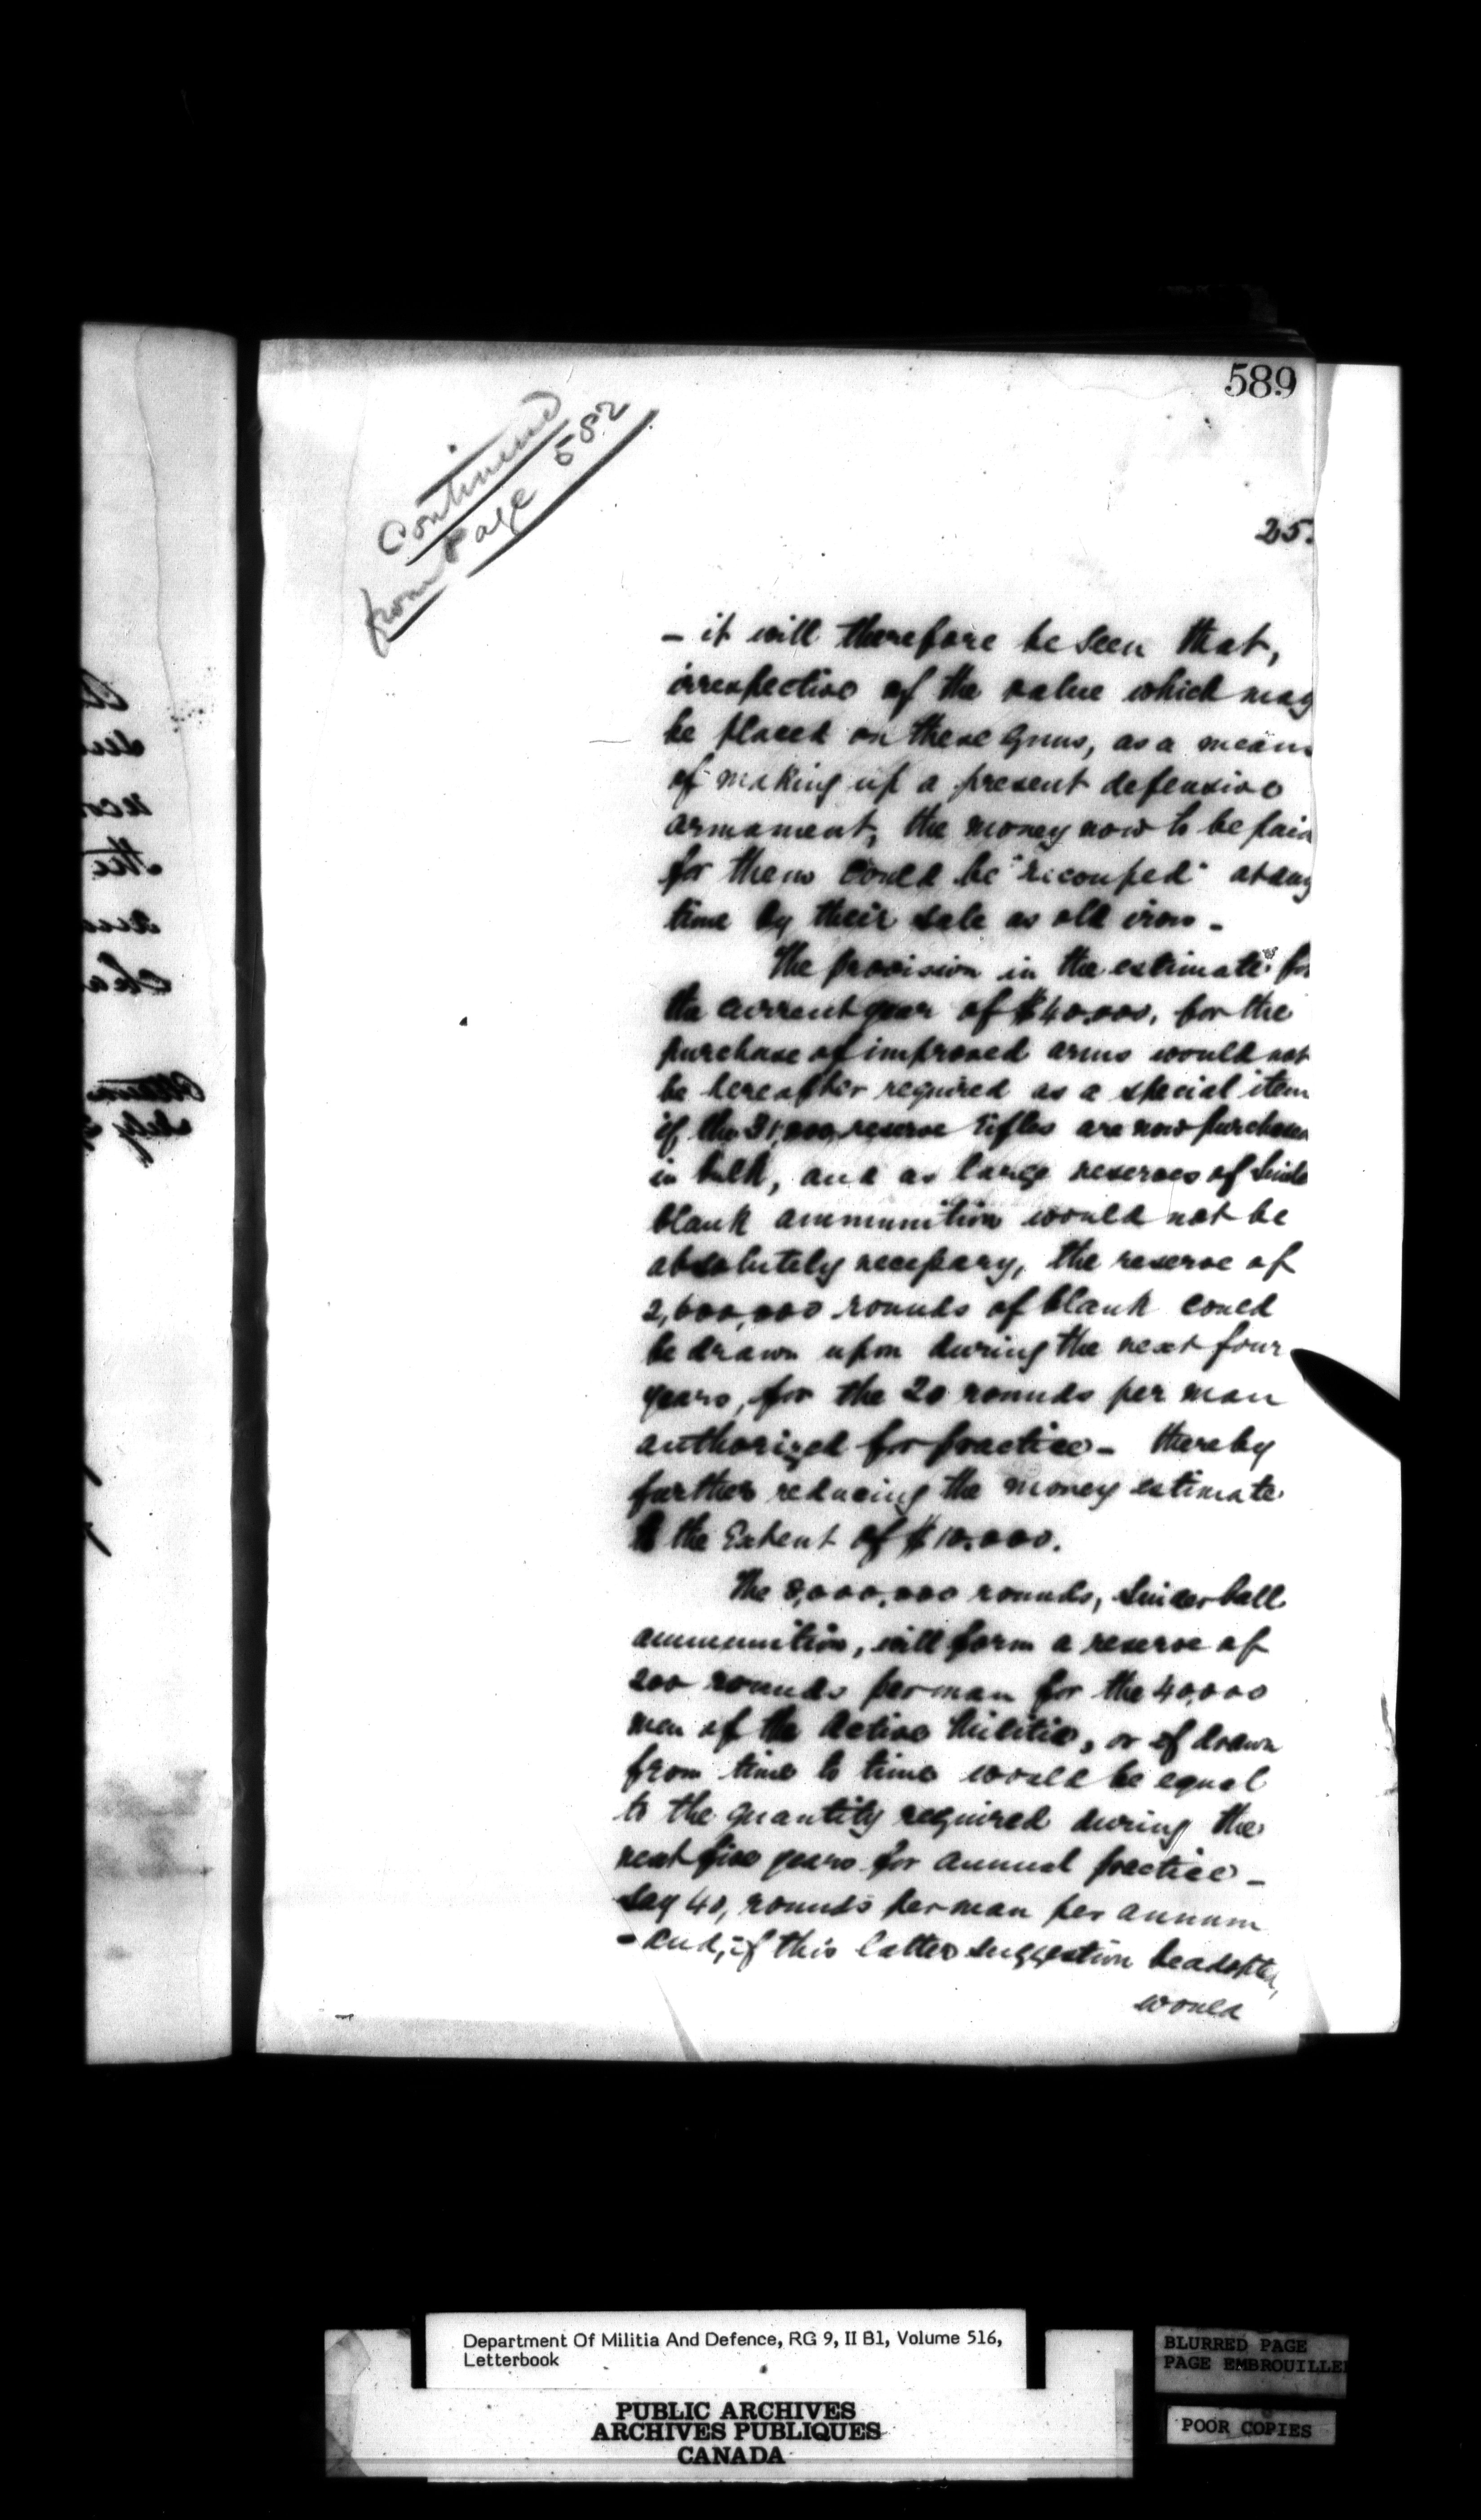 589
Continued
from Page 582
25.
- it will therefore be seen that,
irrespective of the value which may
be placed on these Guns, as a means
of making up a present defensive
armament, the money now to be paid
for them could be "recouped" at any
time by their sale as old iron -
The provision in the estimate for
the current year of $40,000, for the
purchase of improved arms would not
be hereafter required as a special item
if the 21,000 reserve rifles are now purchased
in bulk, and as large reserves of Snider
blank ammunition would not be
absolutely necessary, the reserve of
2,600,000 rounds of blank could
be drawn upon during the next four
years, for the 20 rounds per man
authorized for practice - thereby
further reducing the money estimate
the Extent of $10,000.
The 8,000,000 rounds, Snider ball
ammunition, will form a reserve of
200 rounds per man for the 40,000
men of the Active Militia, or if drawn
from time to time would be equal
to the quantity required during the
next five years for annual practice -
say 40, rounds per man per annum
- and, if this latter suggestion be adopted,
would
Department Of Militia And Defence, RG 9, II B1, Volume 516,
Letterbook
PUBLIC ARCHIVES
ARCHIVES PUBLIQUES
CANADA
BLURRED PAGE
PAGE EMBROUILLEE
POOR COPIES